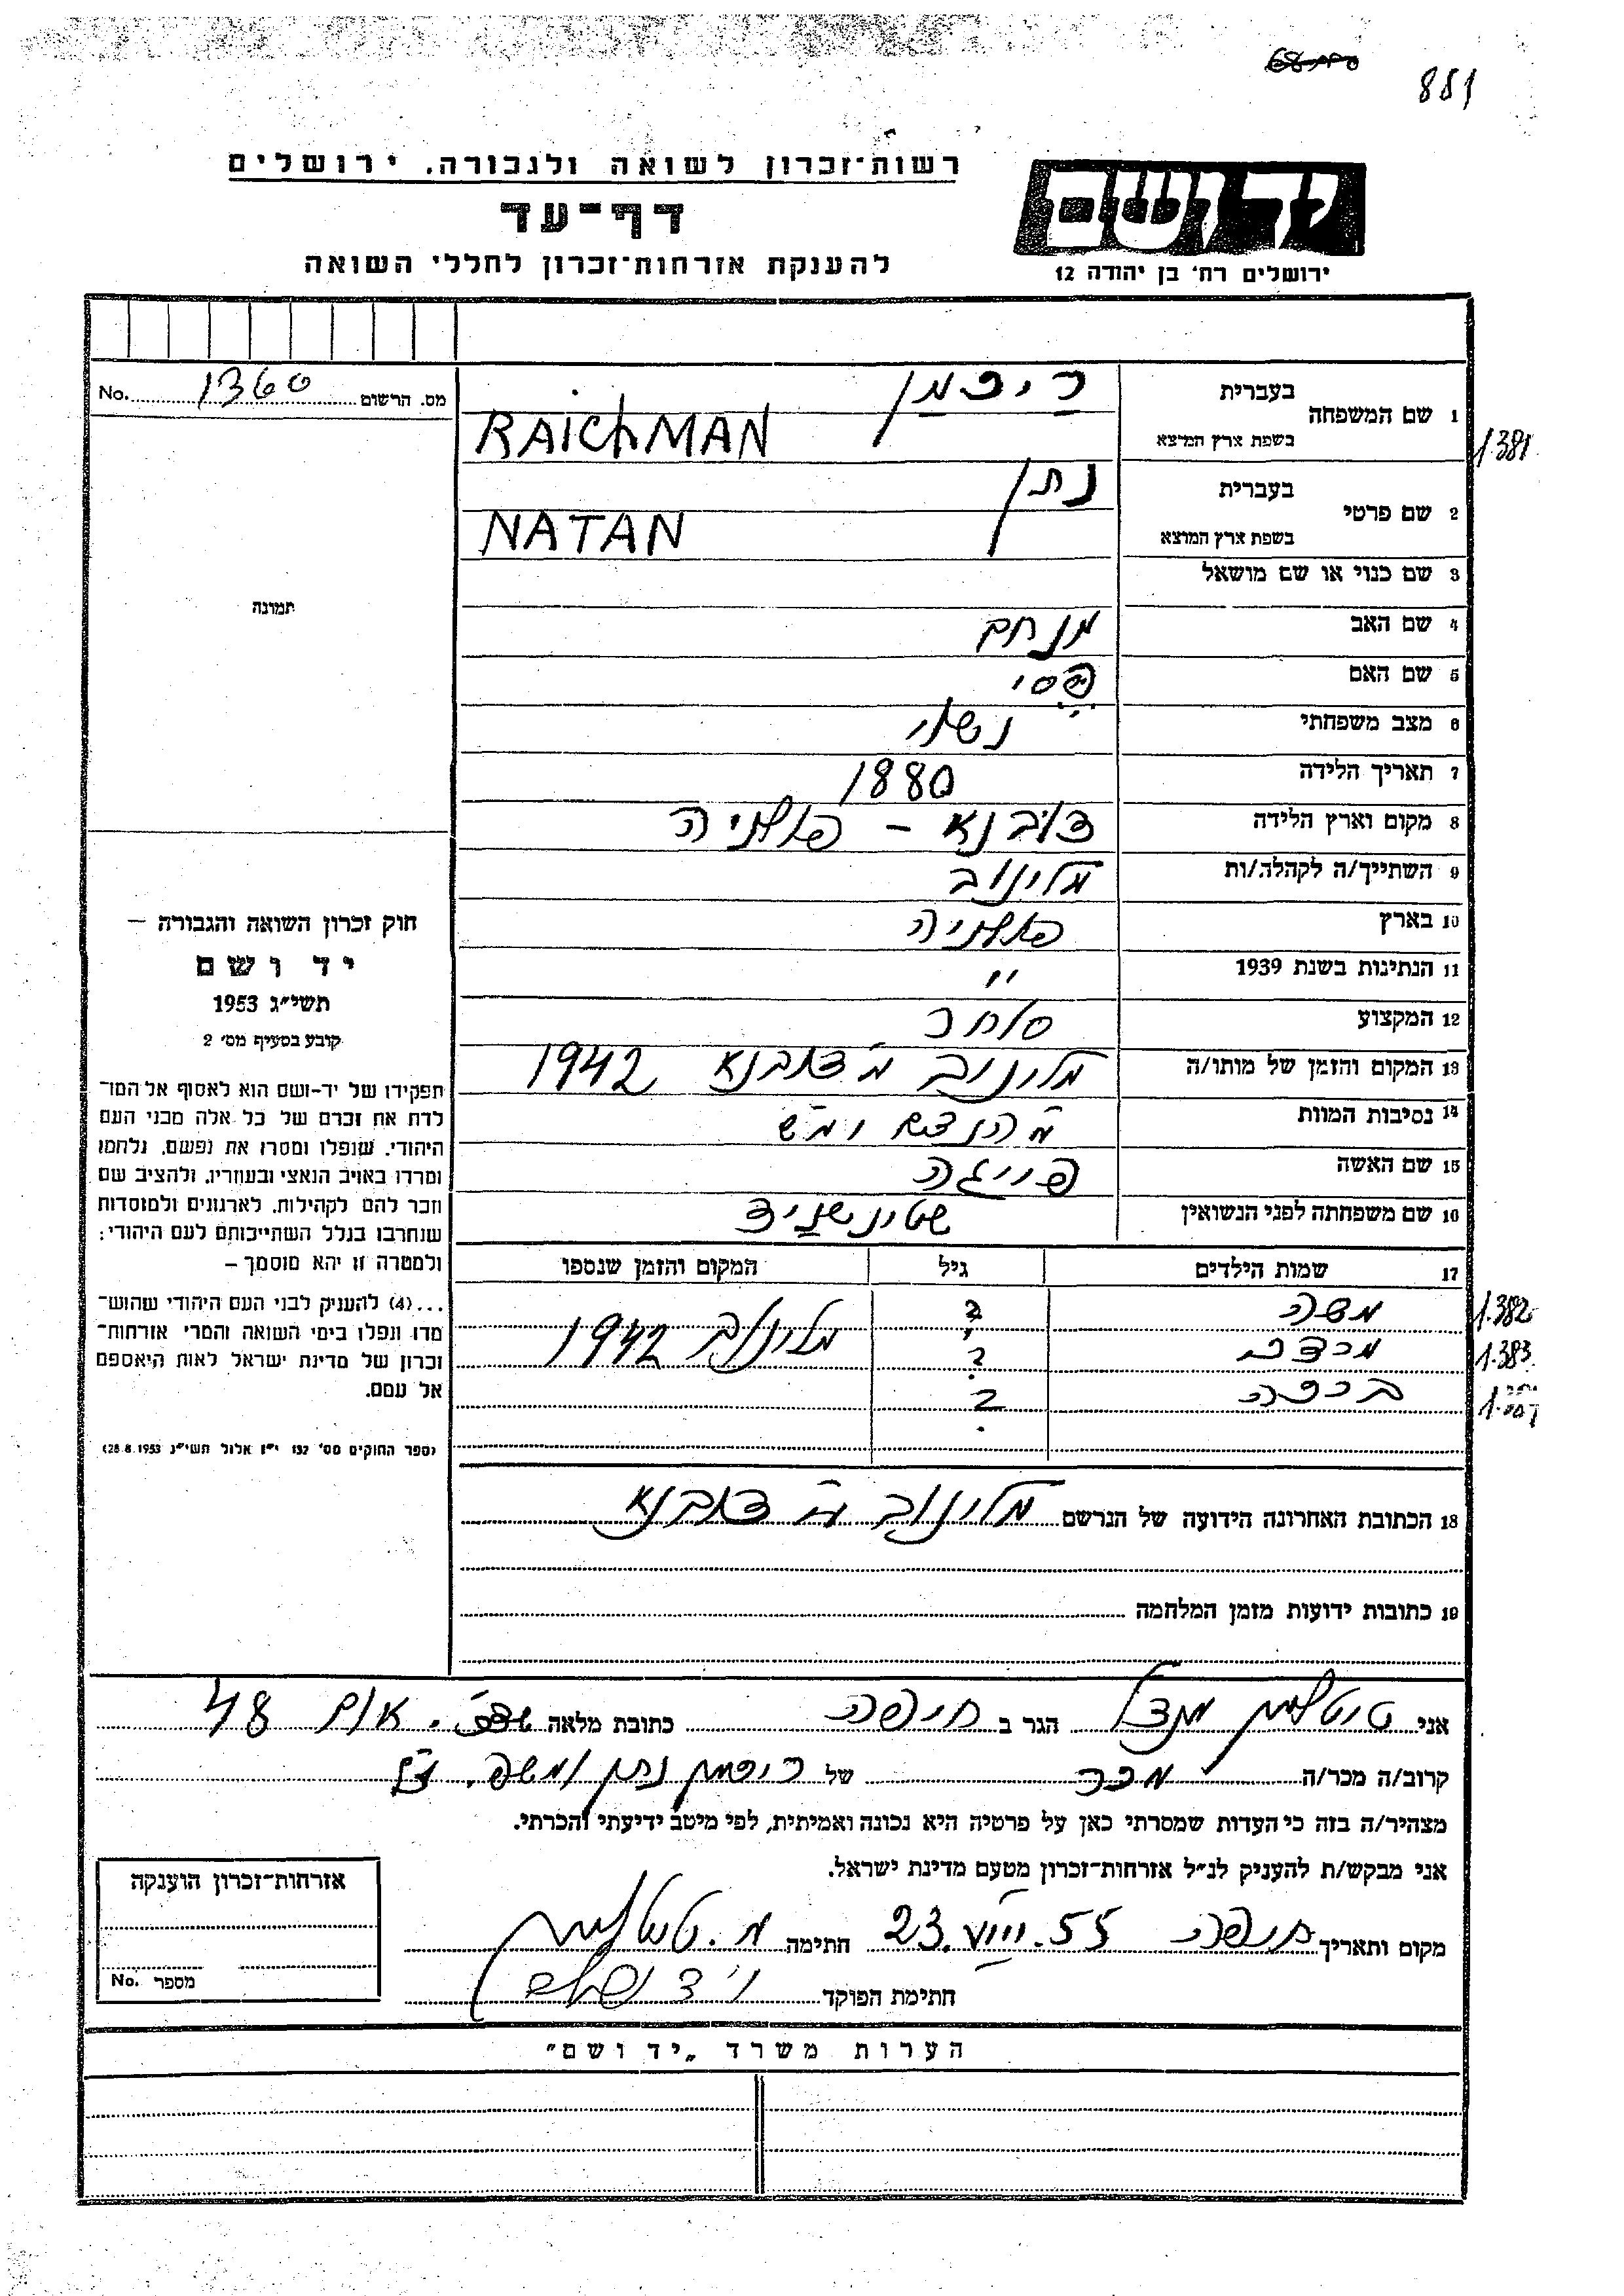 881
רשות־זכרון לשואה ולגבורה. ירושלים
דף־עד
להענקת אזרחות־זכרון לחללי השואה
ידושם
ירושלים רח׳ בן יהודה 12
מס. הרשום 1360 No.
1 שם המשפחה
בעברית רַיכמַן
בשפת ארץ המוצא RAICHMAN
1.381
2 שם פרטי
בעברית נתן
בשפת ארץ המוצא NATAN
3 שם כנוי או שם מושאל
תמונה
4 שם האב מנחם
5 שם האם פסי
6 מצב משפחתי נשוי
7 תאריך הלידה 1880
8 מקום וארץ הלידה דובנא – פולניה
9 השתייך/ה לקהלה/ות מלינוב
10 בארץ פולניה
11 הנתינות בשנת 1939 "
12 המקצוע סוחר
13 המקום והזמן של מותו/ה מלינוב דובנא 1942
14 נסיבות המוות
15 שם האשה פייגה
16 שם משפחתה לפני הנשואין
חוק זכרון השואה והגבורה –
יד ושם
תשי״ג 1953
קובע בסעיף מס׳ 2
תפקידו של יד-ושם הוא לאסוף אל המו־
לדת את זכרם של כל אלה מבני העם
היהודי, שנפלו ומסרו את נפשם, נלחמו
ומרדו באויב הנאצי ובעוזריו, ולהציב שם
וזכר להם לקהילות, לארגונים ולמוסדות
שנחרבו בגלל השתייכותם לעם היהודי:
ולמטרה זו יהא מוסמך –
...(4) להעניק לבני העם היהודי שהוש־
מדו ונפלו בימי השואה והמרי אזרחות־
זכרון של מדינת ישראל לאות היאספם
אל עמם.
(ספר החוקים מס׳ 132 י״ז אלול תשי״ג 28.8.1953)
17 שמות הילדים גיל המקום והזמן שנספו
משה ? מלינוב 1942 1.382
מרדכי ? 1.383
רבקה ?
18 הכתובת האחרונה הידועה של הנרשם מלינוב דובנא
19 כתובות ידועות מזמן המלחמה
אני טיטלמן מנדל הגר ב חיפה כתובת מלאה 48
קרוב/ה מכר/ה מכר של ריכמן נתן ומשפ.
מצהיר/ה בזה כי העדות שמסרתי כאן על פרטיה היא נכונה ואמיתית, לפי מיטב ידיעתי והכרתי.
אני מבקש/ת להעניק לנ״ל אזרחות־זכרון מטעם מדינת ישראל.
מקום ותאריך חיפה 23.VIII.55 חתימה מ. טיטלמן
חתימת הפוקד
אזרחות־זכרון הוענקה
מספר No.
הערות משרד „יד ושם"